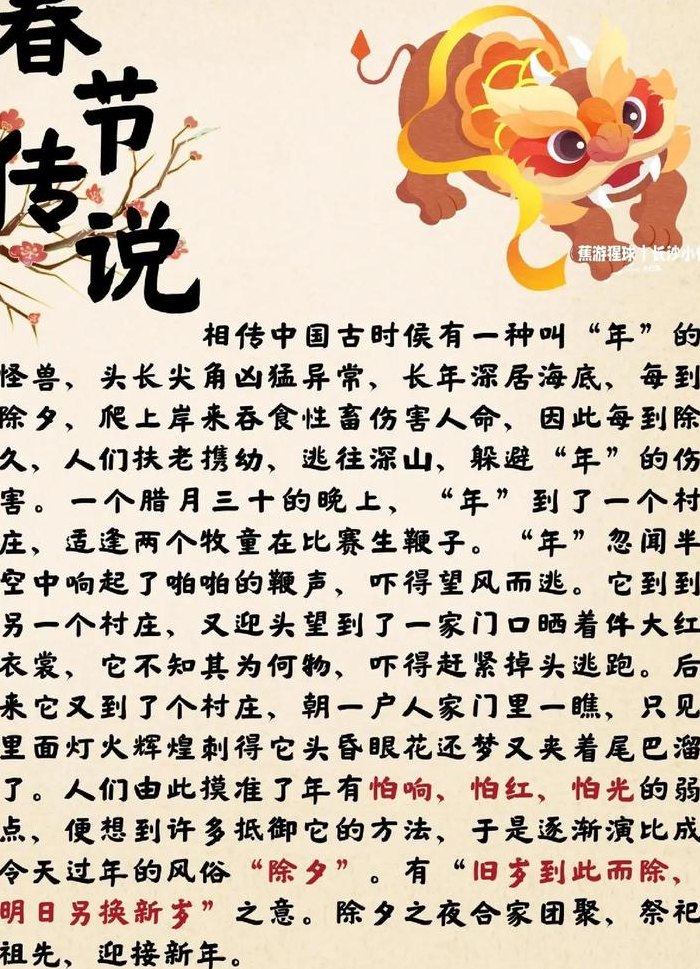 春节
传说
蕉游猩球十长沙小
相传中国古时侯有一种叫“年”的
怪兽，头长尖角凶猛异常，长年深居海底，每到
除夕，爬上岸来吞食性畜伤害人命，因此每到除
久，人们扶老携幼，逃往深山，躲避“年”的伤
害。一个腊月三十的晚上，“年”到了一个村
庄，适逢两个牧童在比赛生鞭子。“年”忽闻半
空中响起了啪啪的鞭声，吓得望风而逃。它到到
另一个村庄，又迎头望到了一家门口晒着件大红
衣裳，它不知其为何物，吓得赶紧掉头逃跑。后
来它又到了个村庄，朝一户人家门里一瞧，只见
里面灯火辉煌刺得它头昏眼花还梦又夹着尾巴溜
了。人们由此摸准了年有怕响，怕红，怕光的弱
点，便想到许多抵御它的方法，于是逐渐演比成
令天过年的风俗“除夕”。有“旧岁到此而除，
明日另换新岁”之意。除夕之夜合家团聚，祭祀
祖先，迎接新年。